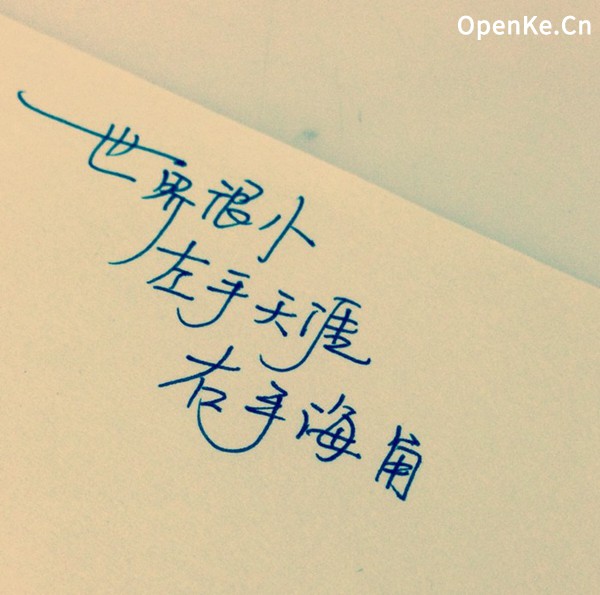 OpenKe.Cn
世界很小
左手天涯
右手海角